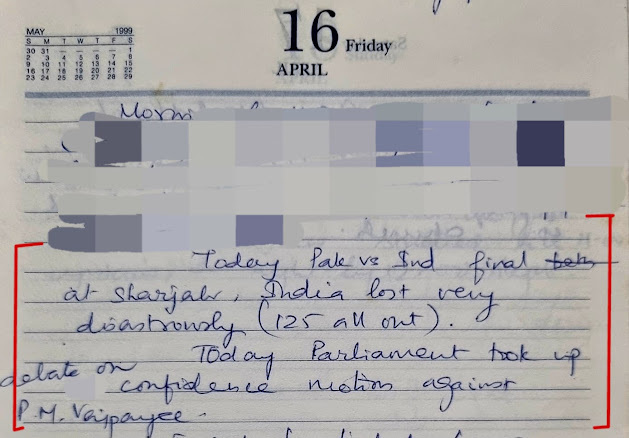 MAY 1999
S M T W T F S
30 31 — — — — 1
2 3 4 5 6 7 8
9 10 11 12 13 14 15
16 17 18 19 20 21 22
23 24 25 26 27 28 29
16 Friday
APRIL
Today Pak vs Ind final
at Sharjah, India lost very
disastrously (125 all out).
Today Parliament took up
debate on
confidence motion against
P.M. Vajpayee.